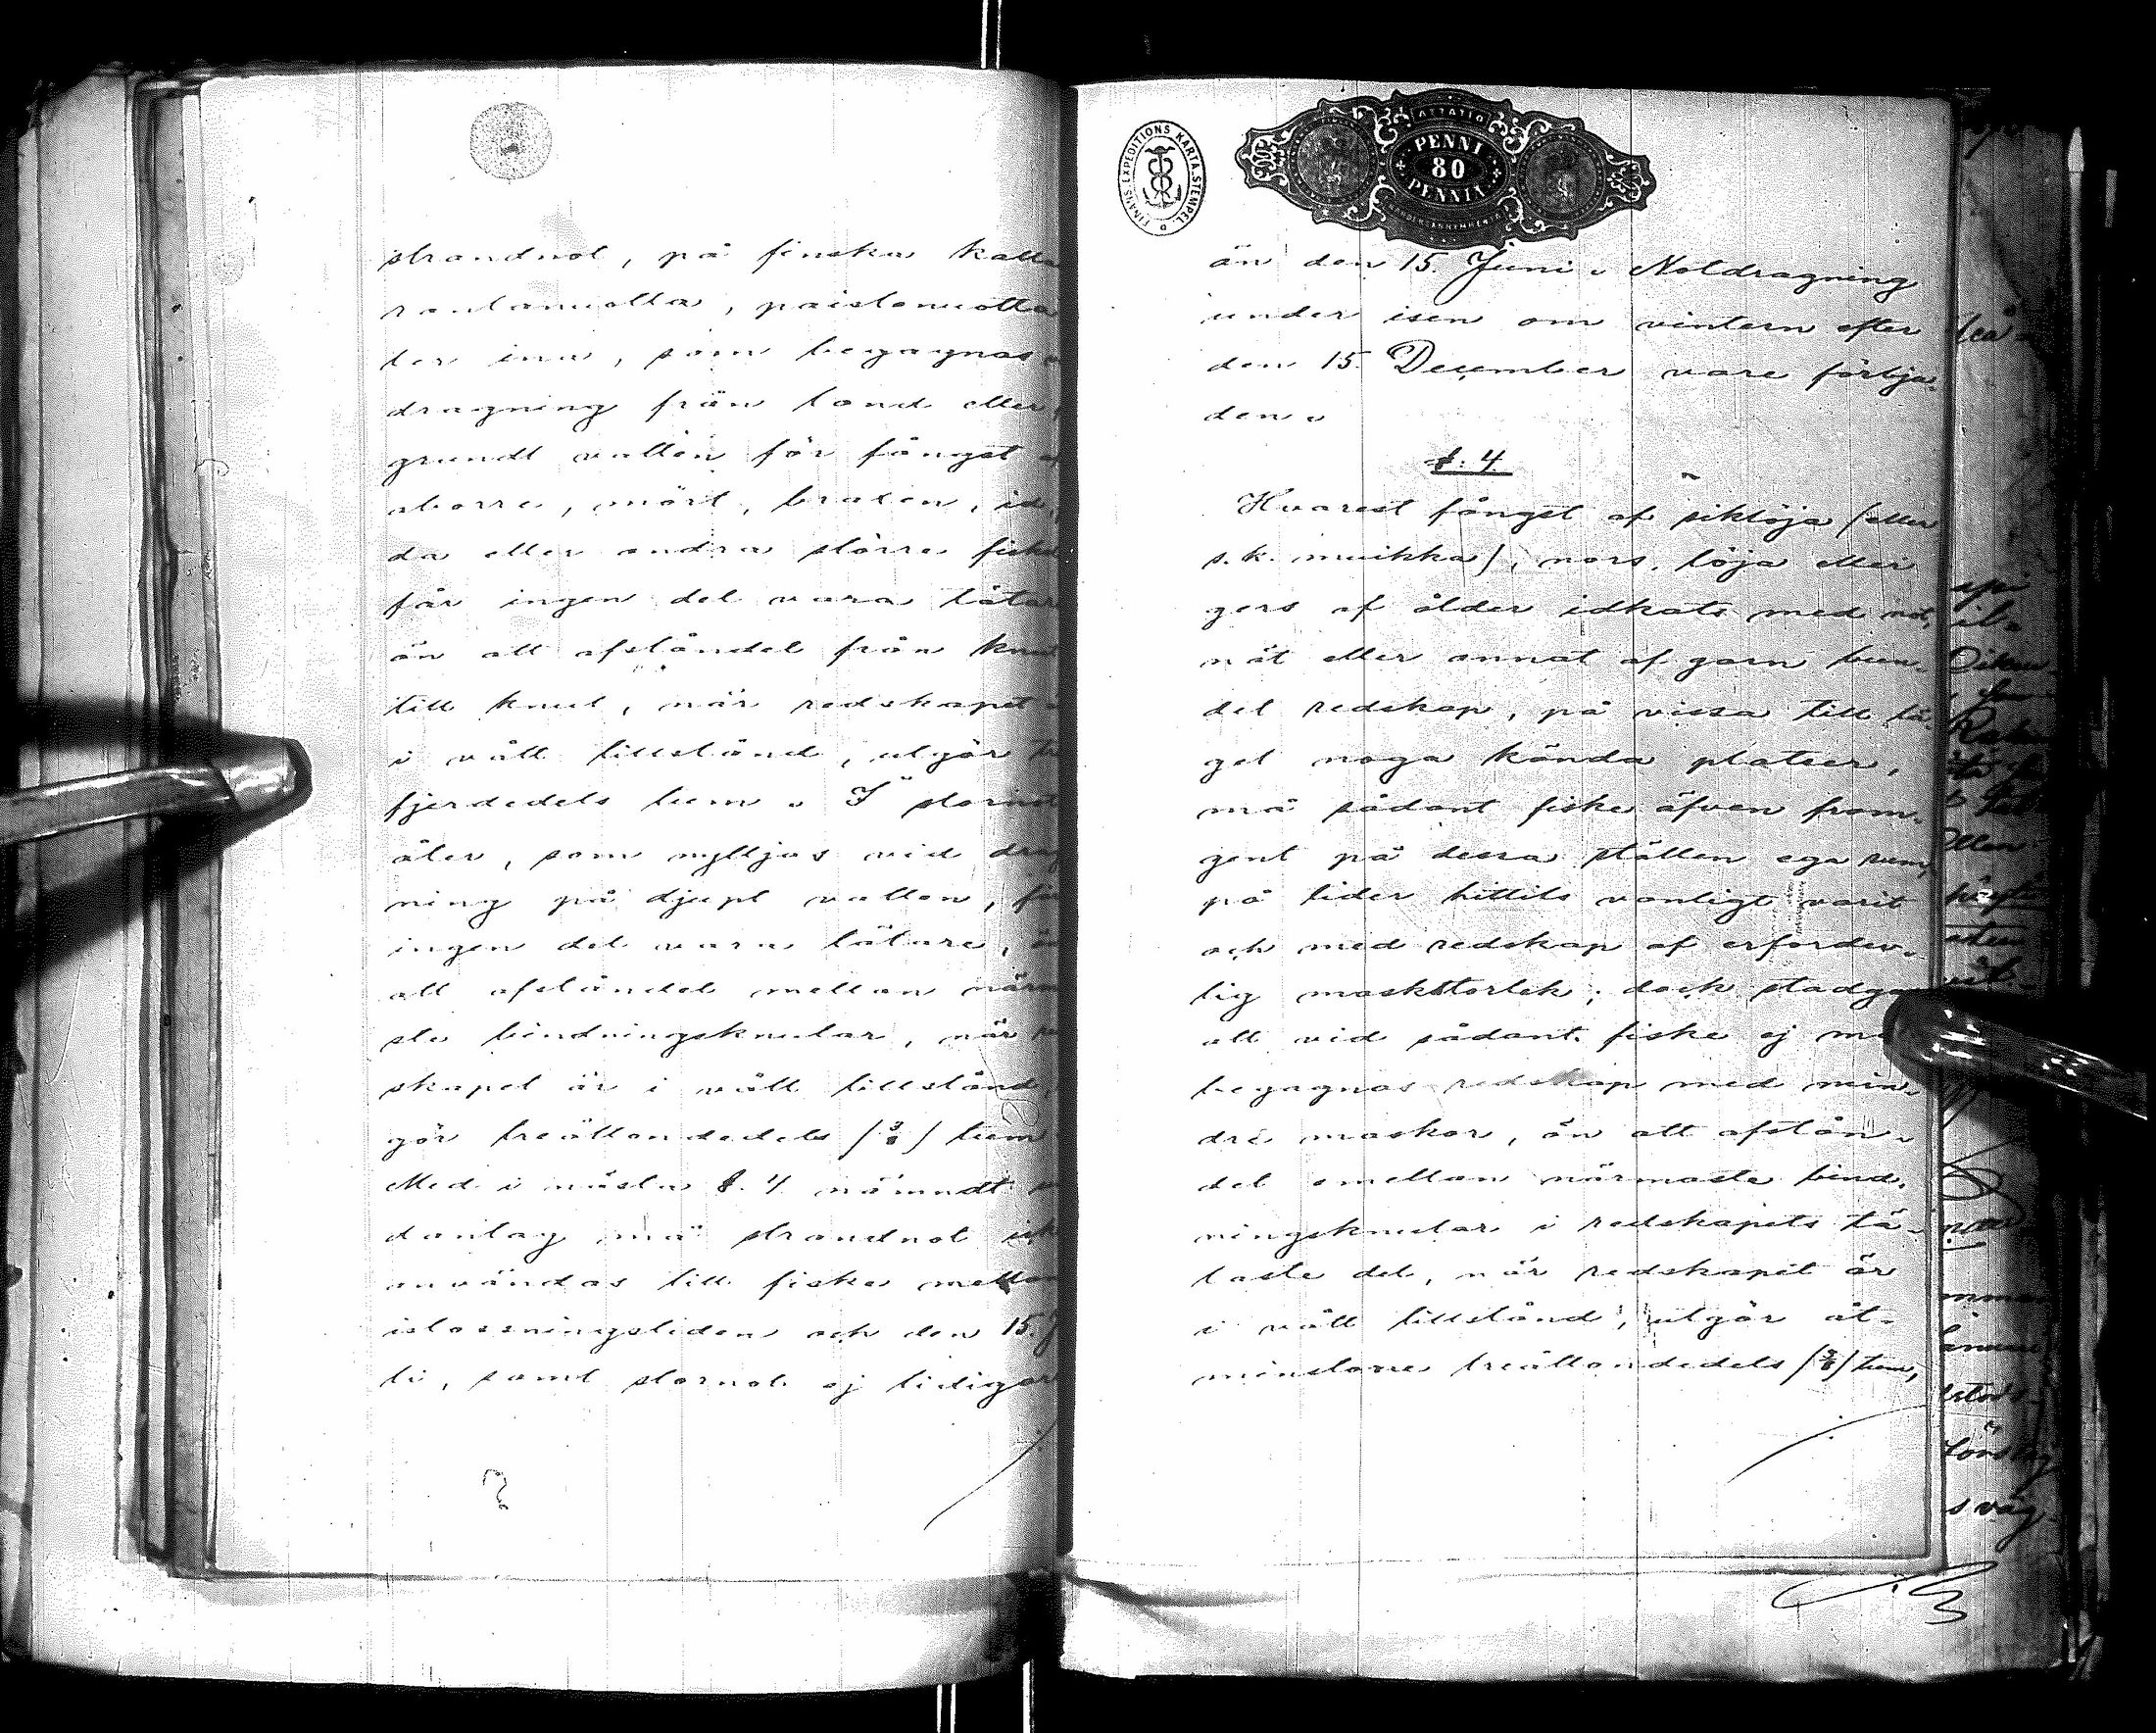 strandnot, på finska kalla
rantanuotta, paistonuotta
ler ina, som begagnas
dragning från land eller
grundt vatten för fångst
aborre, mört, braxen, id,
da eller andra större fiska
får ingen del vara tätar
än att afståndet från knu
till knut, när redskapet
i vått tillstånd, utgör
fjerdedels tum. I stornot
åter, som nyttjas vid drag
ning på djupt vatten, får
ingen del vara tätare, än
att afståndet mellan närm
ste bindningsknutar, när
skapet är i vått tillstånd,
gör treåttondedels (3/8) tum
Med i nästa §. 4 nämndt
dantag må strandnot ick
användas till fiske mella
islossningstiden och den 15. J
li, samt stornot ej tidigar
FINANS. EXPEDITIONS KARTA. STEMPEL.
PENNI
80
PENNIÄ
än den 15. Juni. Notdragning
under isen om vintern efter
den 15. December vare förbju-
den.
§. 4
Hvarest fångst af siklöja (eller
s.k. muikka), nors, löja eller
gers af ålder idkats med not,
nät eller annat af garn bun-
det redskap, på vissa till lä-
get noga kända platser,
må sådant fiske äfven fram-
gent på dessa ställen ega rum,
på tider hittils vanligt varit
och med redskap af erforder-
lig maskstorlek; dock stadgas
att vid sådant fiske ej må
begagnas redskap med min-
dre maskor, än att afstån-
det emellan närmaste bind-
ningsknutar i redskapets tä-
taste del, när redskapet är
i vått tillstånd, utgör åt-
minstone treåttondedels (3/8) tum,